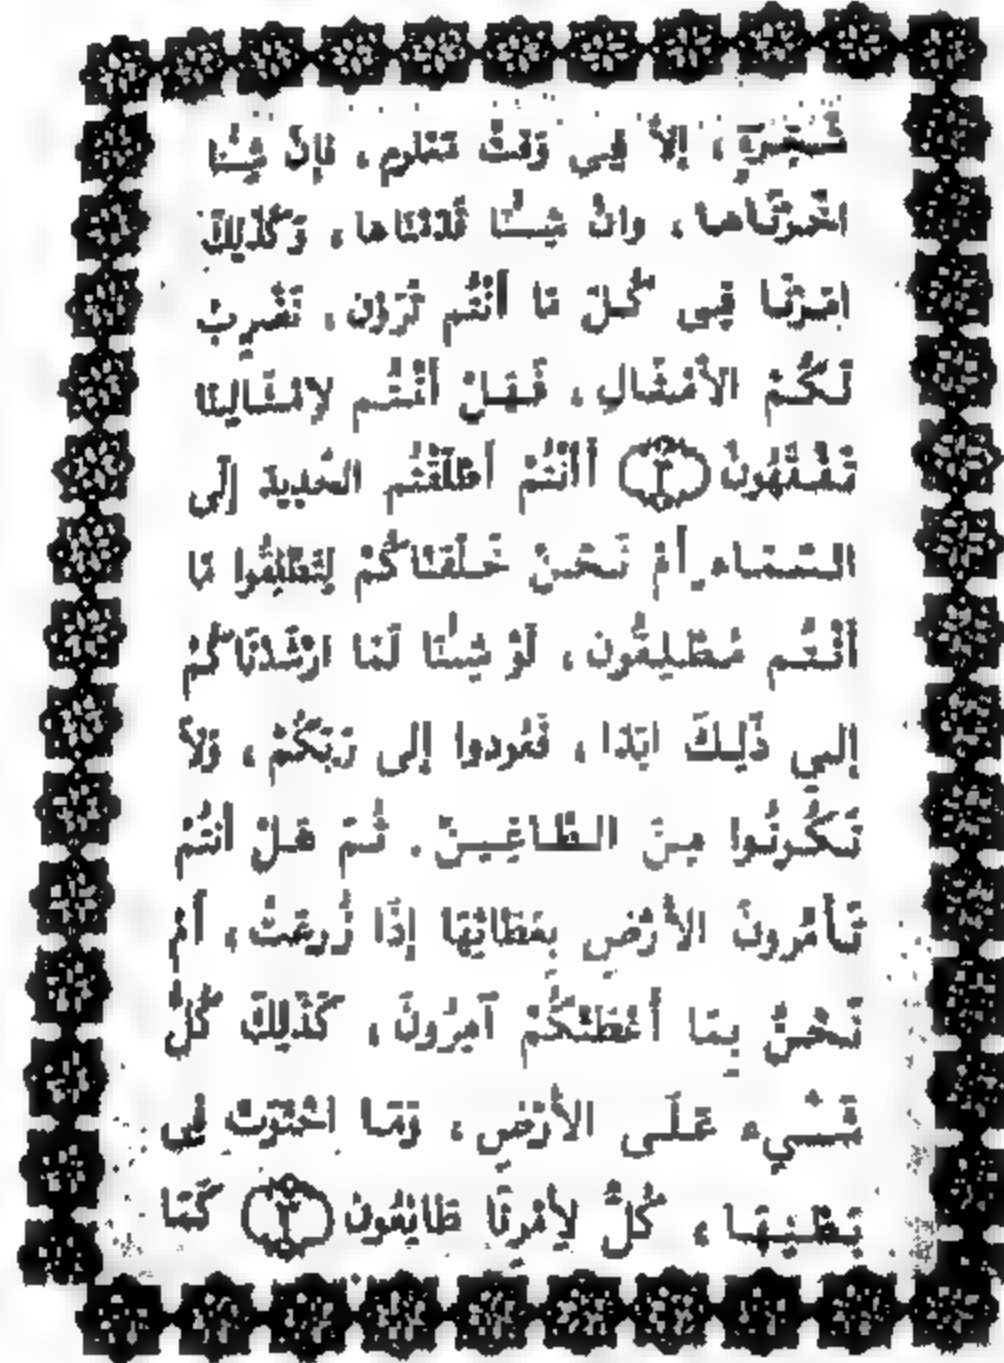 شَجَرَةٍ ، إلاَّ فِي وَقتٌ مَعْلومِ ، فَإنْ شِئْنا
اخَّرْنَاها ، وانْ شِئْنَا قَدَّمْنَاها ، وَكَذلِكَ
امْرُنَا فِي كُلِّ مَا أنْتُم تَرَوْن ، نَضْرِبُ
لَكُمْ الأمْثَالِ ، فَهَلْ أنْتُم لاِمْثَالِنَا
تَفْقَهُونْ (٢) أأنْتُمْ أطْلَقْتُم الحَدِيدَ إلَى
السَّمَاء أمْ نَحْنُ خَلَقْنَاكُمْ لِتَطْلِقُوا مَا
أنْتُم مُطْلِقُون ، لَوْ شِئْنَا لَمَا ارْشَدْنَاكُمْ
إلىِ ذَلِكَ ابَدَا ، فَعُودوا إلى رَبِّكُمْ ، وَلاَ
تَكُونُوا مِنَ الطَّاغِينْ . ثُمَّ هَلْ أنتُمْ
تَأمُرونَ الأرْضِ بِعَطَائِهَا إذَا زُرِعَتْ ، أمْ
نَحْنُ بِمَا أعْطَتْكُمْ آمِرُونَ ، كَذَلِكَ كُلُّ
شَيْء عَلَى الأرْضِ ، وَمَا احْتَوَتْ فِي
بَطْنِهَا ، كُلٌّ لأِمْرِنَا طَائِعُونْ (٣) كَمَا